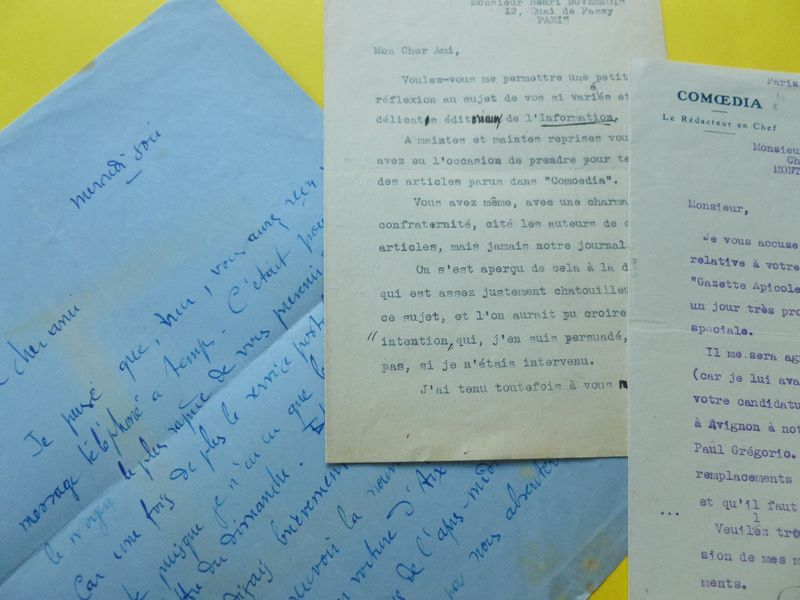 mercredi soir
cher ami
Je pense que, hier, vous avez reçu
message téléphoné à temps. C'était pour
le moyen le plus rapide de vous prévenir
Car une fois de plus le service postal
puisque je n'ai eu que
du dimanche.
brièvement
voiture d'Aix
de l'après-midi
nous absenter
Monsieur Henri DUVERNOIS
12, Quai de Passy
PARIS
Mon Cher Ami,
Voulez-vous me permettre une petit
réflexion au sujet de vos si variés et
délicats éditoriaux de l'Information.
A maintes et maintes reprises vou
avez eu l'occasion de prendre pour te
des articles parus dans "Comoedia".
Vous avez même, avec une charma
confraternité, cité les auteurs de c
articles, mais jamais notre journal
On s'est aperçu de cela à la d
qui est assez justement chatouilleu
ce sujet, et l'on aurait pu croire
intention, qui, j'en suis persuadé,
pas, si je n'étais intervenu.
J'ai tenu toutefois à vous
Paris
COMŒDIA
Le Rédacteur en Chef
Monsieur
Ch
MONT
Monsieur,
Je vous accuse
relative à votre
"Gazette Apicole
un jour très pro
speciale.
Il me sera agr
(car je lui ava
votre candidatu
à Avignon à not
Paul Grégorio.
remplacements
et qu'il faut
...
Veuilez tro
sion de mes m
ments.